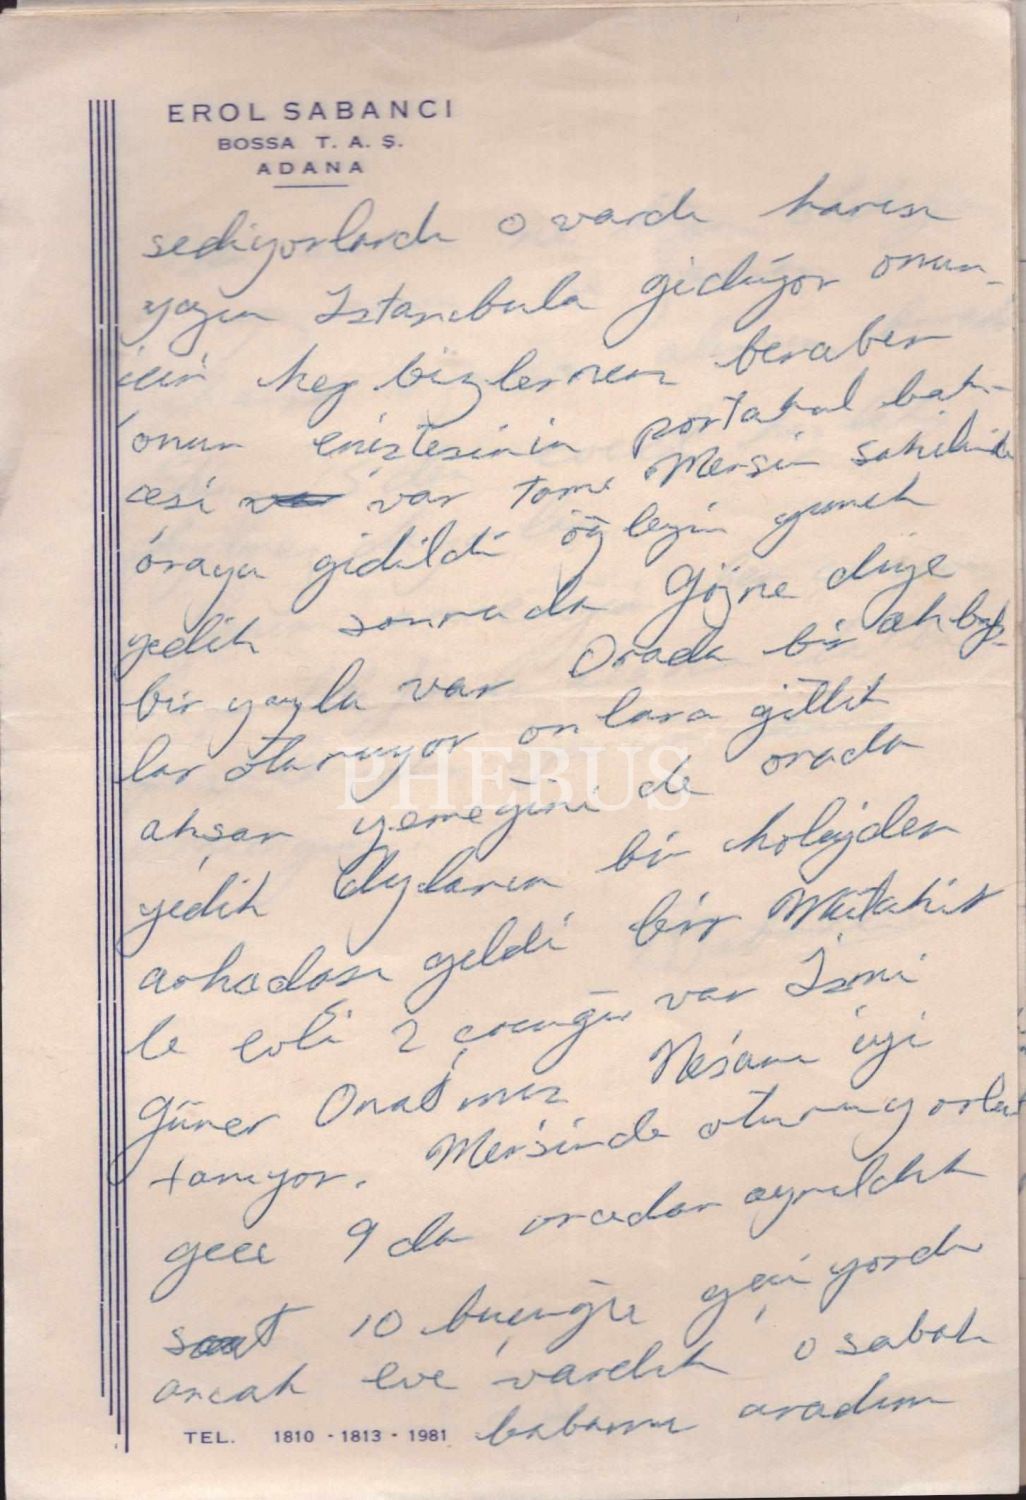 EROL SABANCI
BOSSA T. A. Ş.
ADANA
sediyorlardı o vardı karısı
yazın İstanbula gidiyor onun
için hep bizlernen beraber
onun eniştesinin portakal bah-
cesi var tam Mersin sahilinde
oraya gidildi öğleyin yemek
yedik sonrada Gözne diye
bir yayla var Orada bir ahbap-
lar oturuyor onlara gittik
akşam yemeğini de orada
yedik bir kolejden
arkadaşı geldi bir Mütahit
le evli 2 çocuğu var İsmi
Güner Onatmız Neşanı iyi
tanıyor. Mersinde oturuyorlar
gece 9 da oradan ayrıldık
saat 10 buçuğu geçiyordu
ancak eve vardık o sabah
babamı aradım
TEL. 1810 - 1813 - 1981
PHEBUS